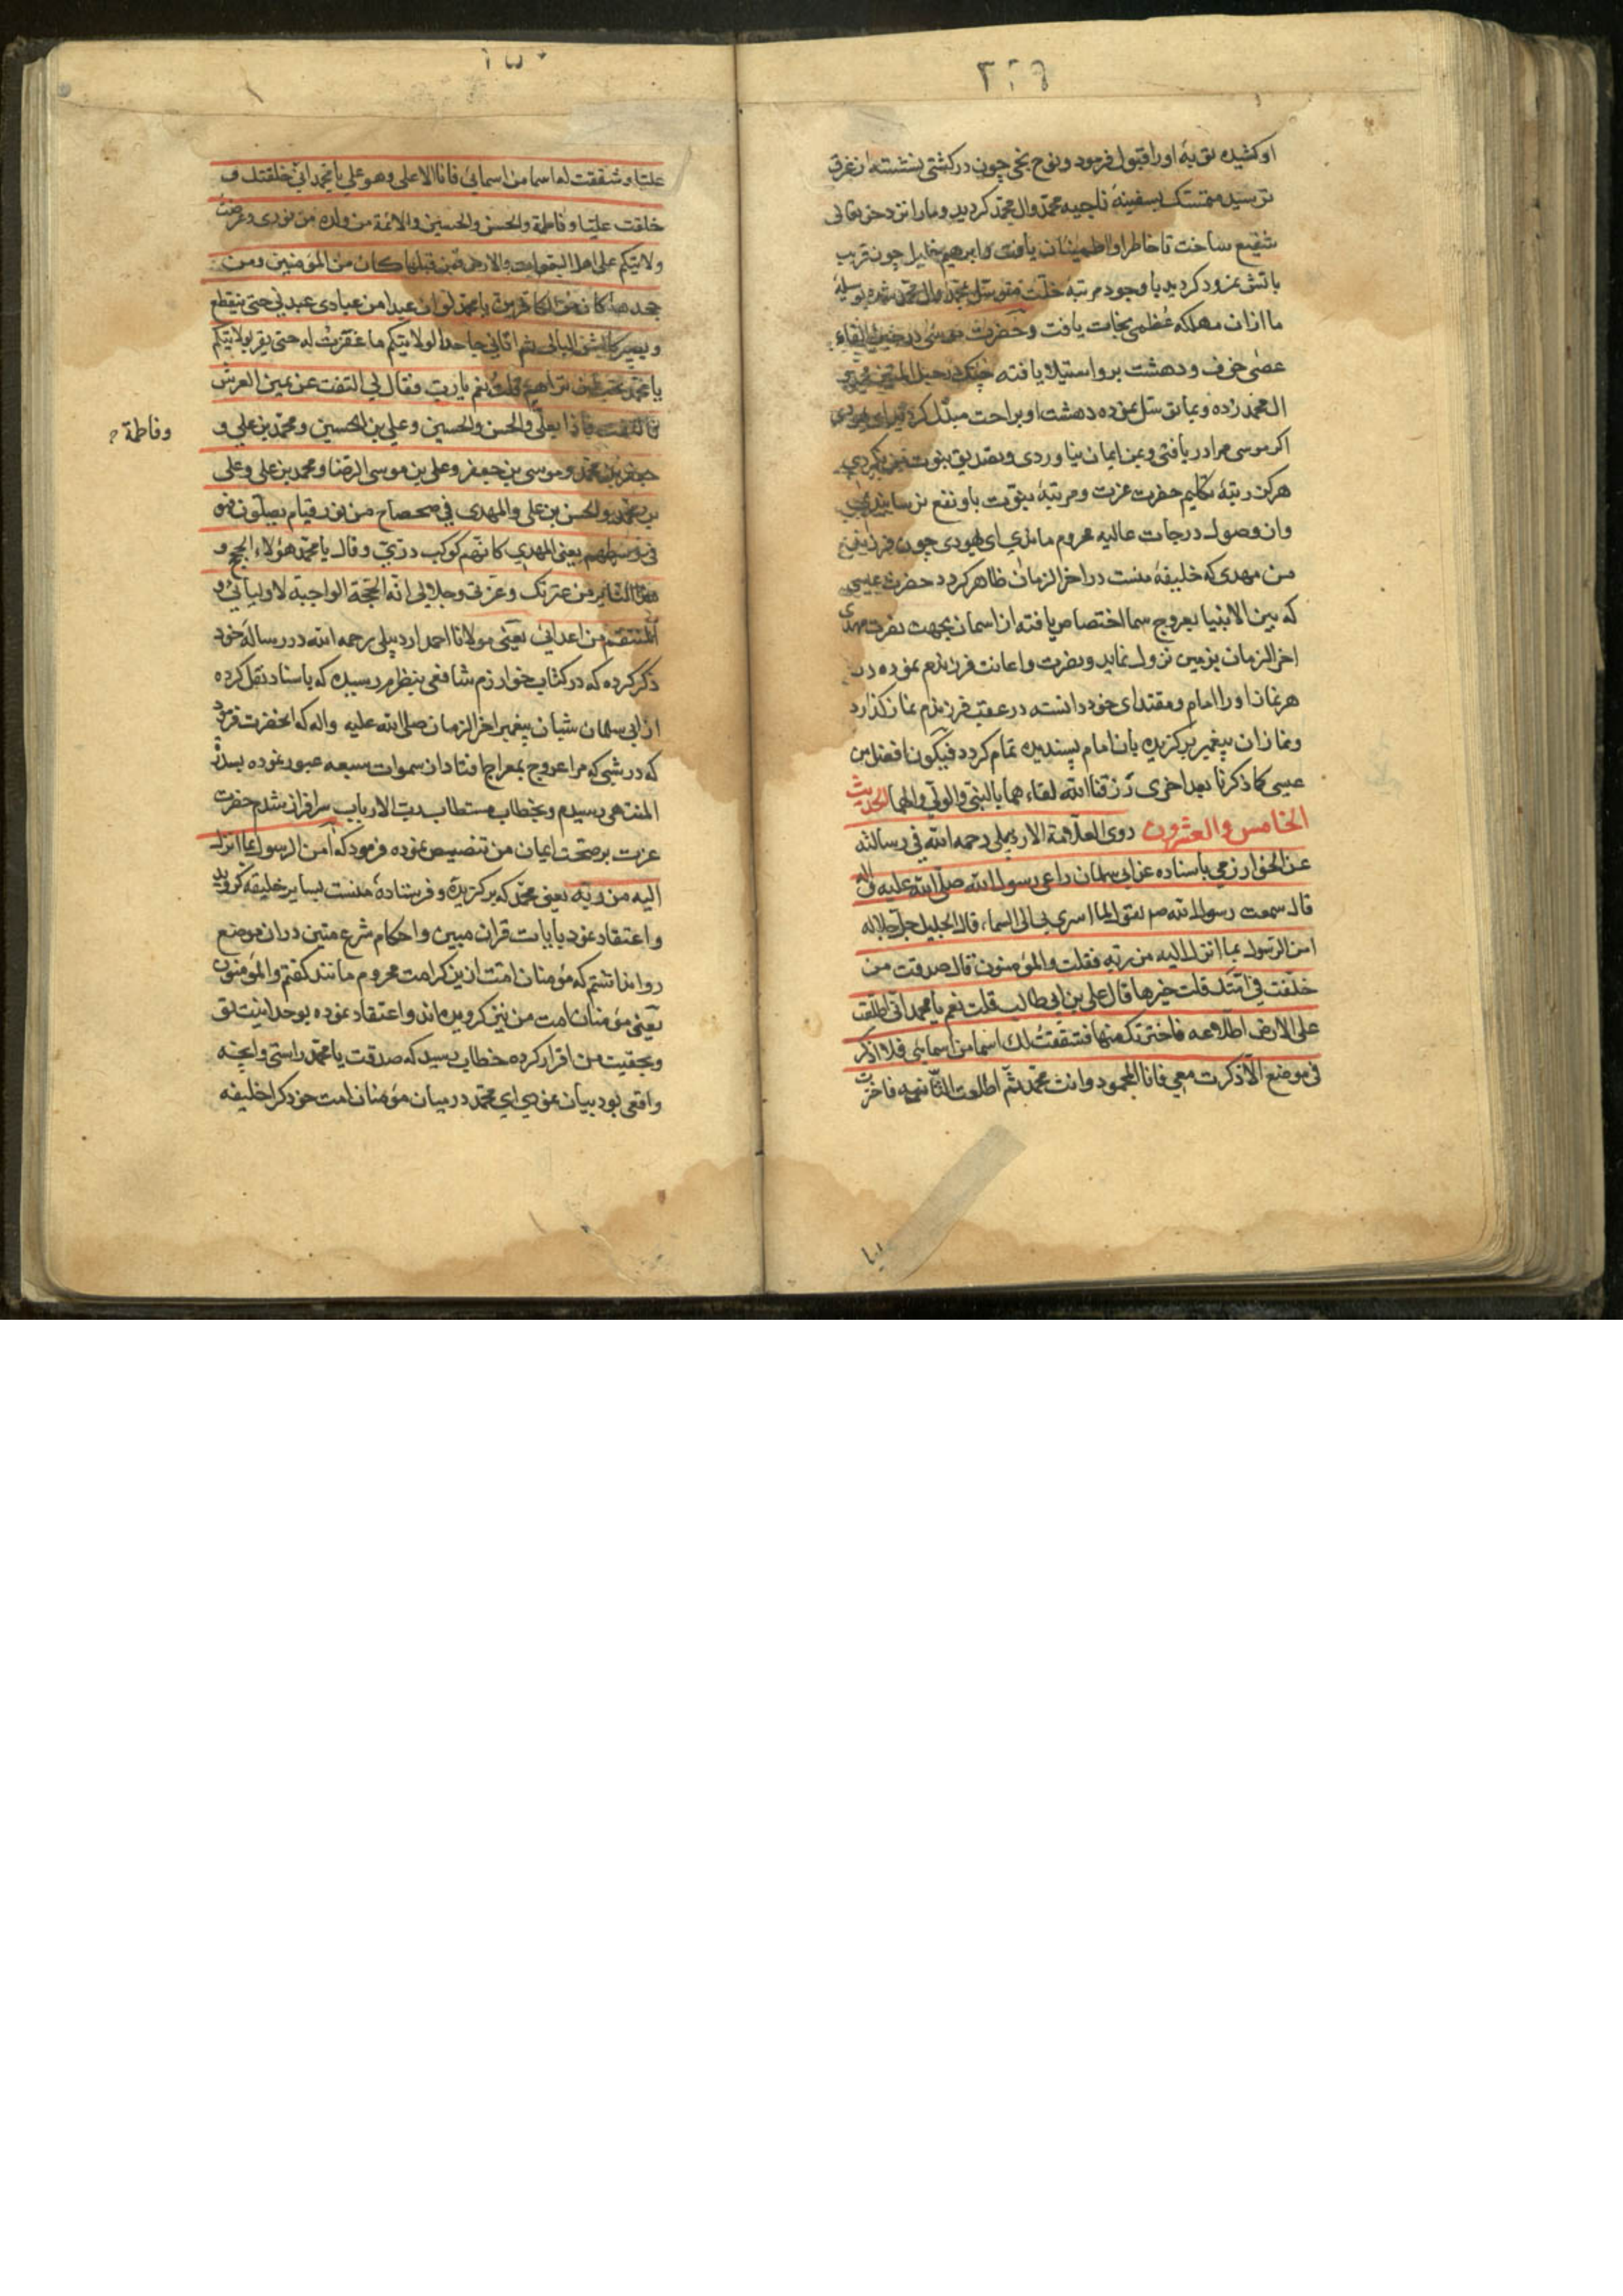 اوکشیده توبهٔ اورا قبول فرمود ونوح نجی چون درکشتی نشسته از غرق
ترسید متمسک بسفینهٔ ناجیه محمد وال محمد کردید ومارا نزد حق تعالی
شفیع ساخت تا خاطر او اطمینان یافت وابرهیم خلیل چون قریب
باتش نمرود کردید باوجود مرتبهٔ خلت متوسل بمحمد وال محمد شده بوسیلهٔ
ما ازان مهلکه عظمی نجات یافت وحضرت موسی درحین القاء
عصی خوف ودهشت برو استیلا یافته چنک درحبل المتین محمد و
ال محمد زده وبما توسل نموده دهشت او براحت مبدل کردید ای یهودی
اکر موسی مرا دریافتی وبمن ایمان نیاوردی وتصدیق بنبوت من نکردی
هرکز رتبهٔ تکلیم حضرت عزت ومرتبهٔ نبوت باو نفع نرسانیدی
وازوصول درجات عالیه محروم ماندی ای یهودی چون فرزند
من مهدی که خلیفهٔ منست دراخر الزمان ظاهر کردد حضرت عیسی
که بین الانبیا بعروج سما اختصاص یافته از اسمان بجهت نصرت مهدی
اخر الزمان بزمین نزول نماید ونصرت واعانت فرزندم نموده در
هر نماز او را امام ومقتدای خود دانسته درعقب فرزندم نماز کذارد
ونماز ان پیغمبر برکزیده بان امام پسندیده تمام کردد فیکون افضل من
عیسی کما ذکرنا بعد اخری رزقنا الله لقاء هما بالنبی والولی والهما الحدیث
الخامس والعشرون روی العلامة الاردبیلی رحمه الله فی رسالته
عن الخوارزمی باسناده عن ابی سلمان راعی رسول الله صلی الله علیه واله
قال سمعت رسول الله صم یقول لما اسری بی الی السماء قال الجلیل جل جلاله
امن الرسول بما انزل الیه من ربه فقلت والمؤمنون قال صدقت من
خلفت فی امتک قلت خیرها قال علی بن ابی طالب قلت نعم یا محمد انی اطلعت
علی الارض اطلاعه فاخترتک منها فشققت لک اسما من اسمائی فلا اذکر
فی موضع الا ذکرت معی فانا المحمود وانت محمد ثم اطلعت الثانیه فاخترت
علیا وشققت له اسما من اسمائی فانا الاعلی وهو علی یا محمد انی خلقتک و
خلقت علیا وفاطمة والحسن والحسین والائمة من ولده من نوری وعرضت
ولایتکم علی اهل السموات والارض فمن قبلها کان من المؤمنین ومن
جحدها کان من الکافرین یا محمد لو ان عبدا من عبادی عبدنی حتی ینقطع
ویصیر کالشن البالی ثم اتانی جاحدا لولایتکم ما غفرت له حتی یقر بولایتکم
یا محمد تحب ان تراهم قلت نعم یا رب فقال لی التفت عن یمین العرش
فالتفت فاذا بعلی والحسن والحسین وعلی بن الحسین ومحمد بن علی و
وفاطمة
جعفر بن محمد وموسی بن جعفر وعلی بن موسی الرضا ومحمد بن علی وعلی
بن محمد والحسن بن علی والمهدی فی ضحضاح من نور قیام یصلون وهو
فی وسطهم یعنی المهدی کانهم کوکب دری وقال یا محمد هؤلاء الحجج و
هو الثایر من عترتک وعزتی وجلالی انه الحجة الواجبة لاولیائی و
المنتقم من اعدائی یعنی مولانا احمد اردبیلی رحمه الله در رسالهٔ خود
ذکر کرده که درکتاب خوارزم شافعی بنظرم رسیده که باسناد نقل کرده
از ابی سلمان شبان پیغمبر اخر الزمان صلی الله علیه واله که انحضرت فرمود
که در شبی که مرا عروج بمعراج افتاد از سموات سبعه عبور نموده بسدرة
المنتهی رسیدم وبخطاب مستطاب رب الارباب سرافراز شدم حضرت
عزت برصحت ایمان من تنصیص نموده فرمود که آمن الرسول بما انزل
الیه من ربه یعنی محمد که برکزیده وفرستادهٔ منست بسایر خلیقه کروید
واعتقاد نمود بایات قران مبین واحکام شرع متین دران موضع
روا نداشتم که مؤمنان امت ازین کرامت محروم مانند کفتم والمؤمنون
یعنی مؤمنان امت من نیز کرویده اند واعتقاد نموده بوحدانیت تو
وبحقیت من اقرار کرده خطاب رسید که صدقت یا محمد راستی وانچه
واقعی بود بیان نمودی ای محمد درمیان مؤمنان امت خود کرا خلیفه